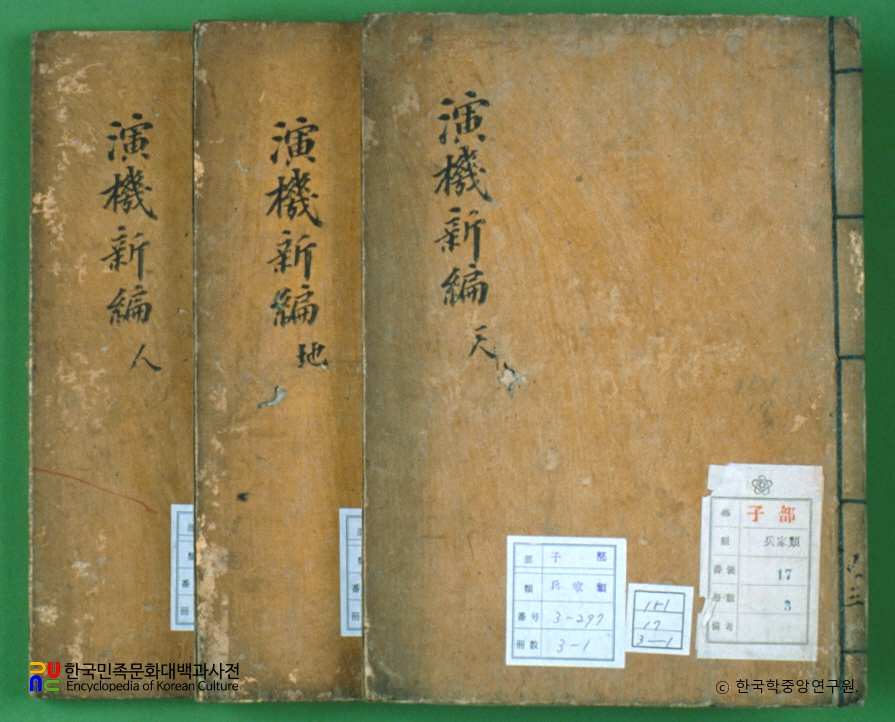 演機新編 人
演機新編 地
演機新編 天
部 子部
類 兵家類
番号 3-297
冊数 3-1
151
17
3-1
部 子部
類 兵家類
番號 17
冊數 3
備考
類
番
冊
類
番
冊
한국민족문화대백과사전
Encyclopedia of Korean Culture
ⓒ 한국학중앙연구원.